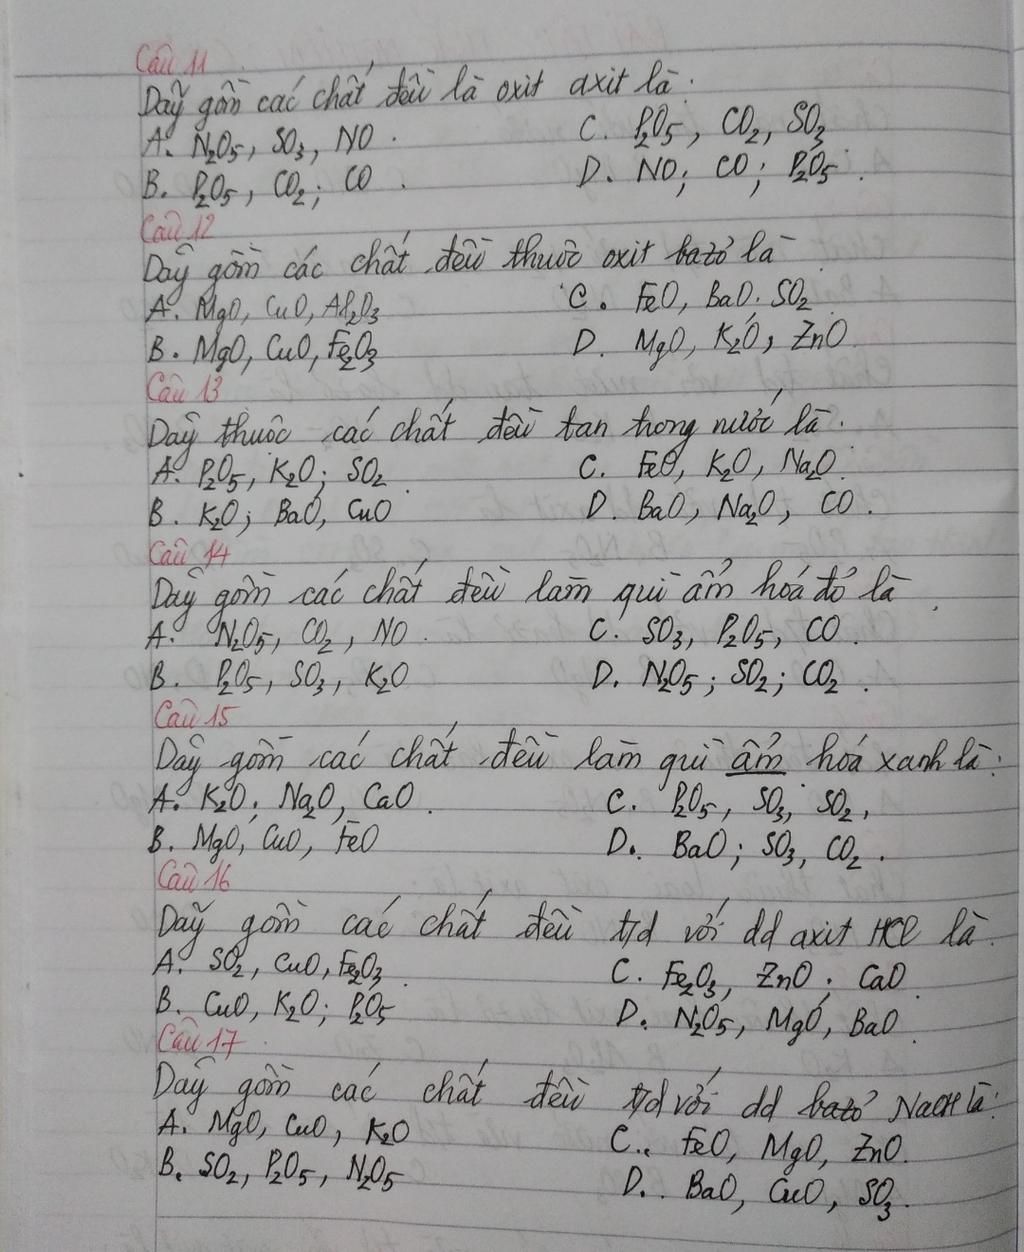 Câu 11
Dãy gồm các chất đều là oxit axit là.
A. N₂O₅, SO₃, NO. C. P₂O₅, CO₂, SO₃
B. P₂O₅, CO₂; CO. D. NO; CO; P₂O₅.
Câu 12
Dãy gồm các chất đều thuộc oxit bazơ là
A. MgO, CuO, Al₂O₃ C. FeO, BaO. SO₂
B. MgO, CuO, Fe₂O₃ D. MgO, K₂O, ZnO
Câu 13
Dãy thuộc các chất đều tan trong nước là.
A. P₂O₅, K₂O; SO₂. C. FeO, K₂O, Na₂O.
B. K₂O; BaO, CuO D. BaO, Na₂O, CO.
Câu 14
Dãy gồm các chất đều làm quì ẩm hoá đỏ là.
A. N₂O₅, CO₂, NO. C. SO₃, P₂O₅, CO.
B. P₂O₅, SO₃, K₂O D. N₂O₅; SO₂; CO₂.
Câu 15
Dãy gồm các chất đều làm quì ẩm hoá xanh là:
A. K₂O; Na₂O, CaO. C. P₂O₅, SO₃, SO₂,
B. MgO, CuO, FeO D. BaO; SO₃, CO₂.
Câu 16
Dãy gồm các chất đều t/d với dd axit HCl là.
A. SO₂, CuO, Fe₂O₃. C. Fe₂O₃, ZnO. CaO
B. CuO, K₂O; P₂O₅ D. N₂O₅, MgO, BaO.
Câu 17.
Dãy gồm các chất đều t/d với dd bazơ NaOH là:
A. MgO, CuO, K₂O C. FeO, MgO, ZnO.
B. SO₂, P₂O₅, N₂O₅ D. BaO, CuO, SO₃.